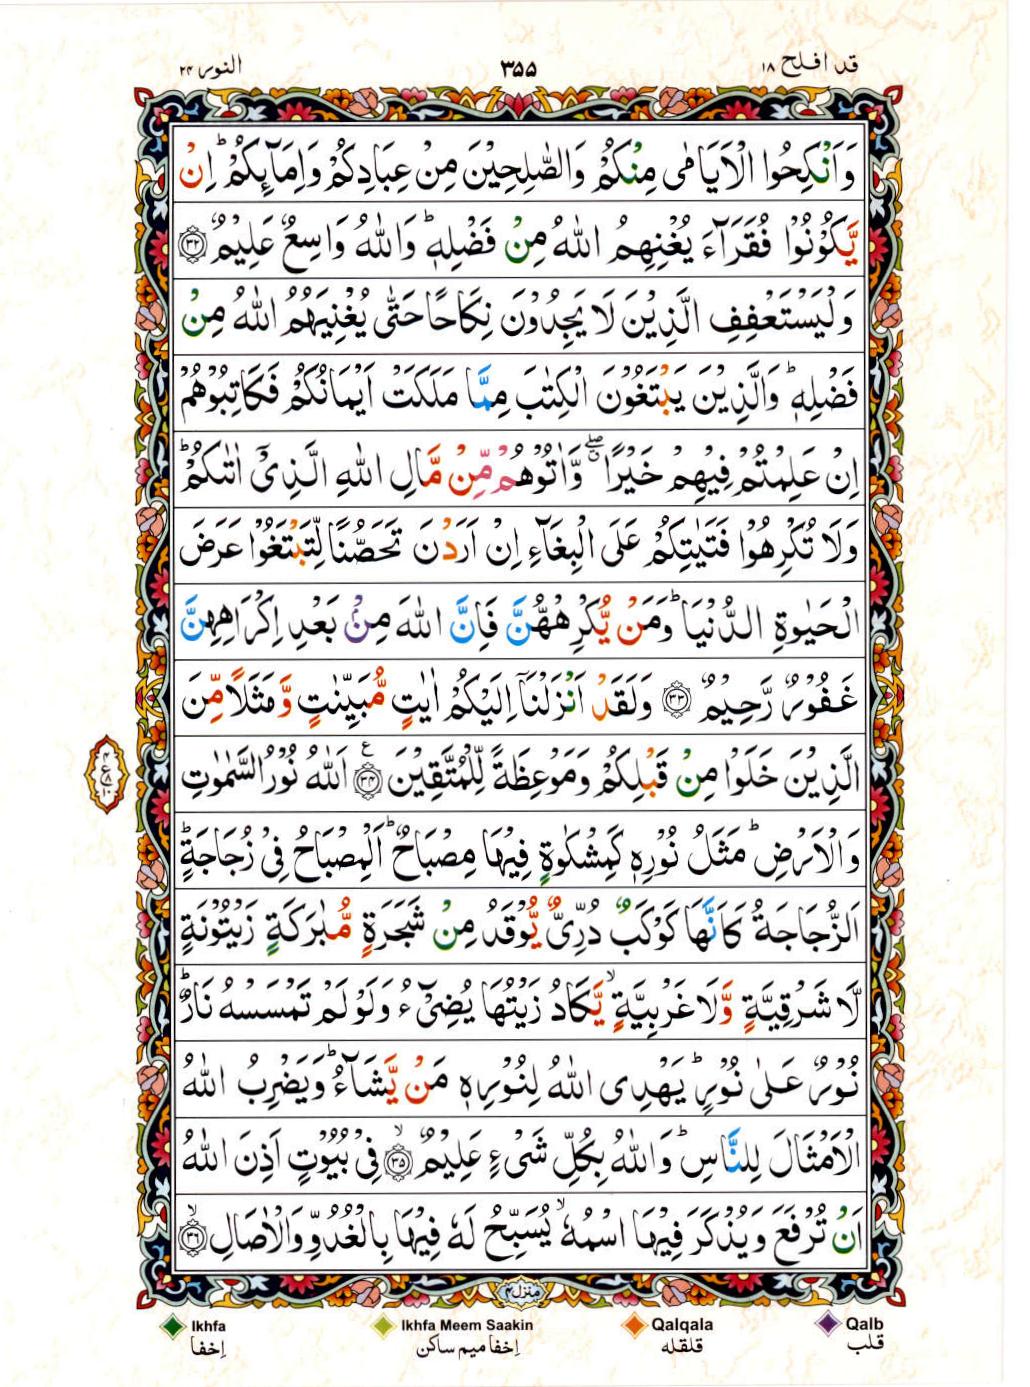 قد افلح ۱۸
۳۵۵
النور ۲۴
وَاَنْكِحُوا الْاَيَامٰى مِنْكُمْ وَالصّٰلِحِيْنَ مِنْ عِبَادِكُمْ وَاِمَآىِٕكُمْ ؕ اِنْ
يَّكُوْنُوْا فُقَرَآءَ يُغْنِهِمُ اللّٰهُ مِنْ فَضْلِهٖ ؕ وَاللّٰهُ وَاسِعٌ عَلِيْمٌ ۝۳۲
وَلْيَسْتَعْفِفِ الَّذِيْنَ لَا يَجِدُوْنَ نِكَاحًا حَتّٰى يُغْنِيَهُمُ اللّٰهُ مِنْ
فَضْلِهٖ ؕ وَالَّذِيْنَ يَبْتَغُوْنَ الْكِتٰبَ مِمَّا مَلَكَتْ اَيْمَانُكُمْ فَكَاتِبُوْهُمْ
اِنْ عَلِمْتُمْ فِيْهِمْ خَيْرًا ۖ وَّاٰتُوْهُمْ مِّنْ مَّالِ اللّٰهِ الَّذِىْۤ اٰتٰىكُمْ ؕ
وَلَا تُكْرِهُوْا فَتَيٰتِكُمْ عَلَى الْبِغَآءِ اِنْ اَرَدْنَ تَحَصُّنًا لِّتَبْتَغُوْا عَرَضَ
الْحَيٰوةِ الدُّنْيَا ؕ وَمَنْ يُّكْرِهْهُّنَّ فَاِنَّ اللّٰهَ مِنْۢ بَعْدِ اِكْرَاهِهِنَّ
غَفُوْرٌ رَّحِيْمٌ ۝۳۳ وَلَقَدْ اَنْزَلْنَاۤ اِلَيْكُمْ اٰيٰتٍ مُّبَيِّنٰتٍ وَّمَثَلًا مِّنَ
الَّذِيْنَ خَلَوْا مِنْ قَبْلِكُمْ وَمَوْعِظَةً لِّلْمُتَّقِيْنَ ۝۳۴ ع اَللّٰهُ نُوْرُ السَّمٰوٰتِ
۴
ع ۸
۱۰
وَالْاَرْضِ ؕ مَثَلُ نُوْرِهٖ كَمِشْكٰوةٍ فِيْهَا مِصْبَاحٌ ؕ اَلْمِصْبَاحُ فِىْ زُجَاجَةٍ ؕ
اَلزُّجَاجَةُ كَاَنَّهَا كَوْكَبٌ دُرِّىٌّ يُّوْقَدُ مِنْ شَجَرَةٍ مُّبٰرَكَةٍ زَيْتُوْنَةٍ
لَّا شَرْقِيَّةٍ وَّلَا غَرْبِيَّةٍ ۙ يَّكَادُ زَيْتُهَا يُضِىْٓءُ وَلَوْ لَمْ تَمْسَسْهُ نَارٌ ؕ
نُوْرٌ عَلٰى نُوْرٍ ؕ يَهْدِى اللّٰهُ لِنُوْرِهٖ مَنْ يَّشَآءُ ؕ وَيَضْرِبُ اللّٰهُ
الْاَمْثَالَ لِلنَّاسِ ؕ وَاللّٰهُ بِكُلِّ شَىْءٍ عَلِيْمٌ ۙ ۝۳۵ فِىْ بُيُوْتٍ اَذِنَ اللّٰهُ
اَنْ تُرْفَعَ وَيُذْكَرَ فِيْهَا اسْمُهٗ ۙ يُسَبِّحُ لَهٗ فِيْهَا بِالْغُدُوِّ وَالْاٰصَالِ ۙ ۝۳۶
منزل ۴
Ikhfa Ikhfa Meem Saakin Qalqala Qalb
إخفا إخفا ميم ساكن قلقله قلب